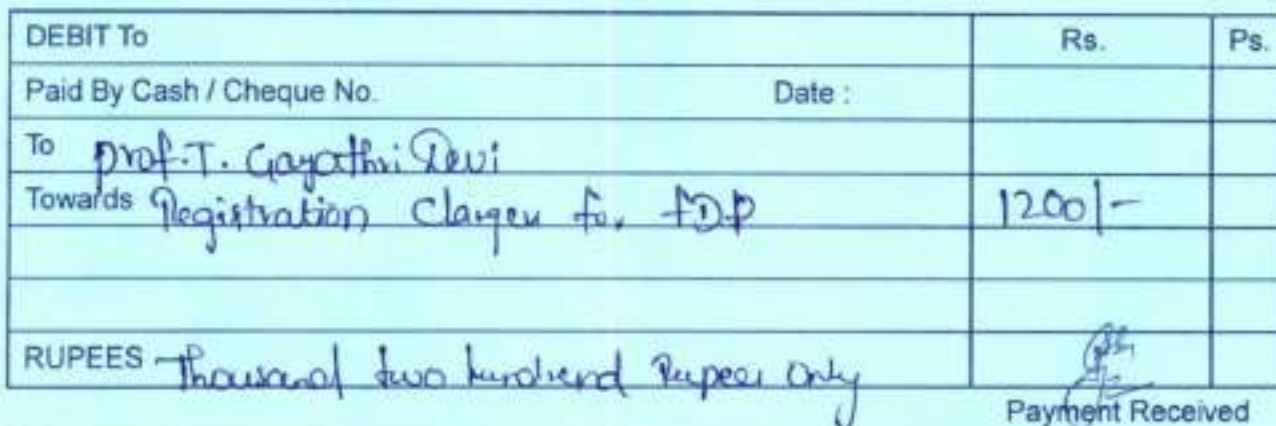 DEBIT To Rs. Ps.
Paid By Cash / Cheque No. Date :
To Prof. T. Gayathri Devi
Towards Registration Charges for FDP 1200/-
RUPEES Thousand two hundrend Rupees Only
Payment Received